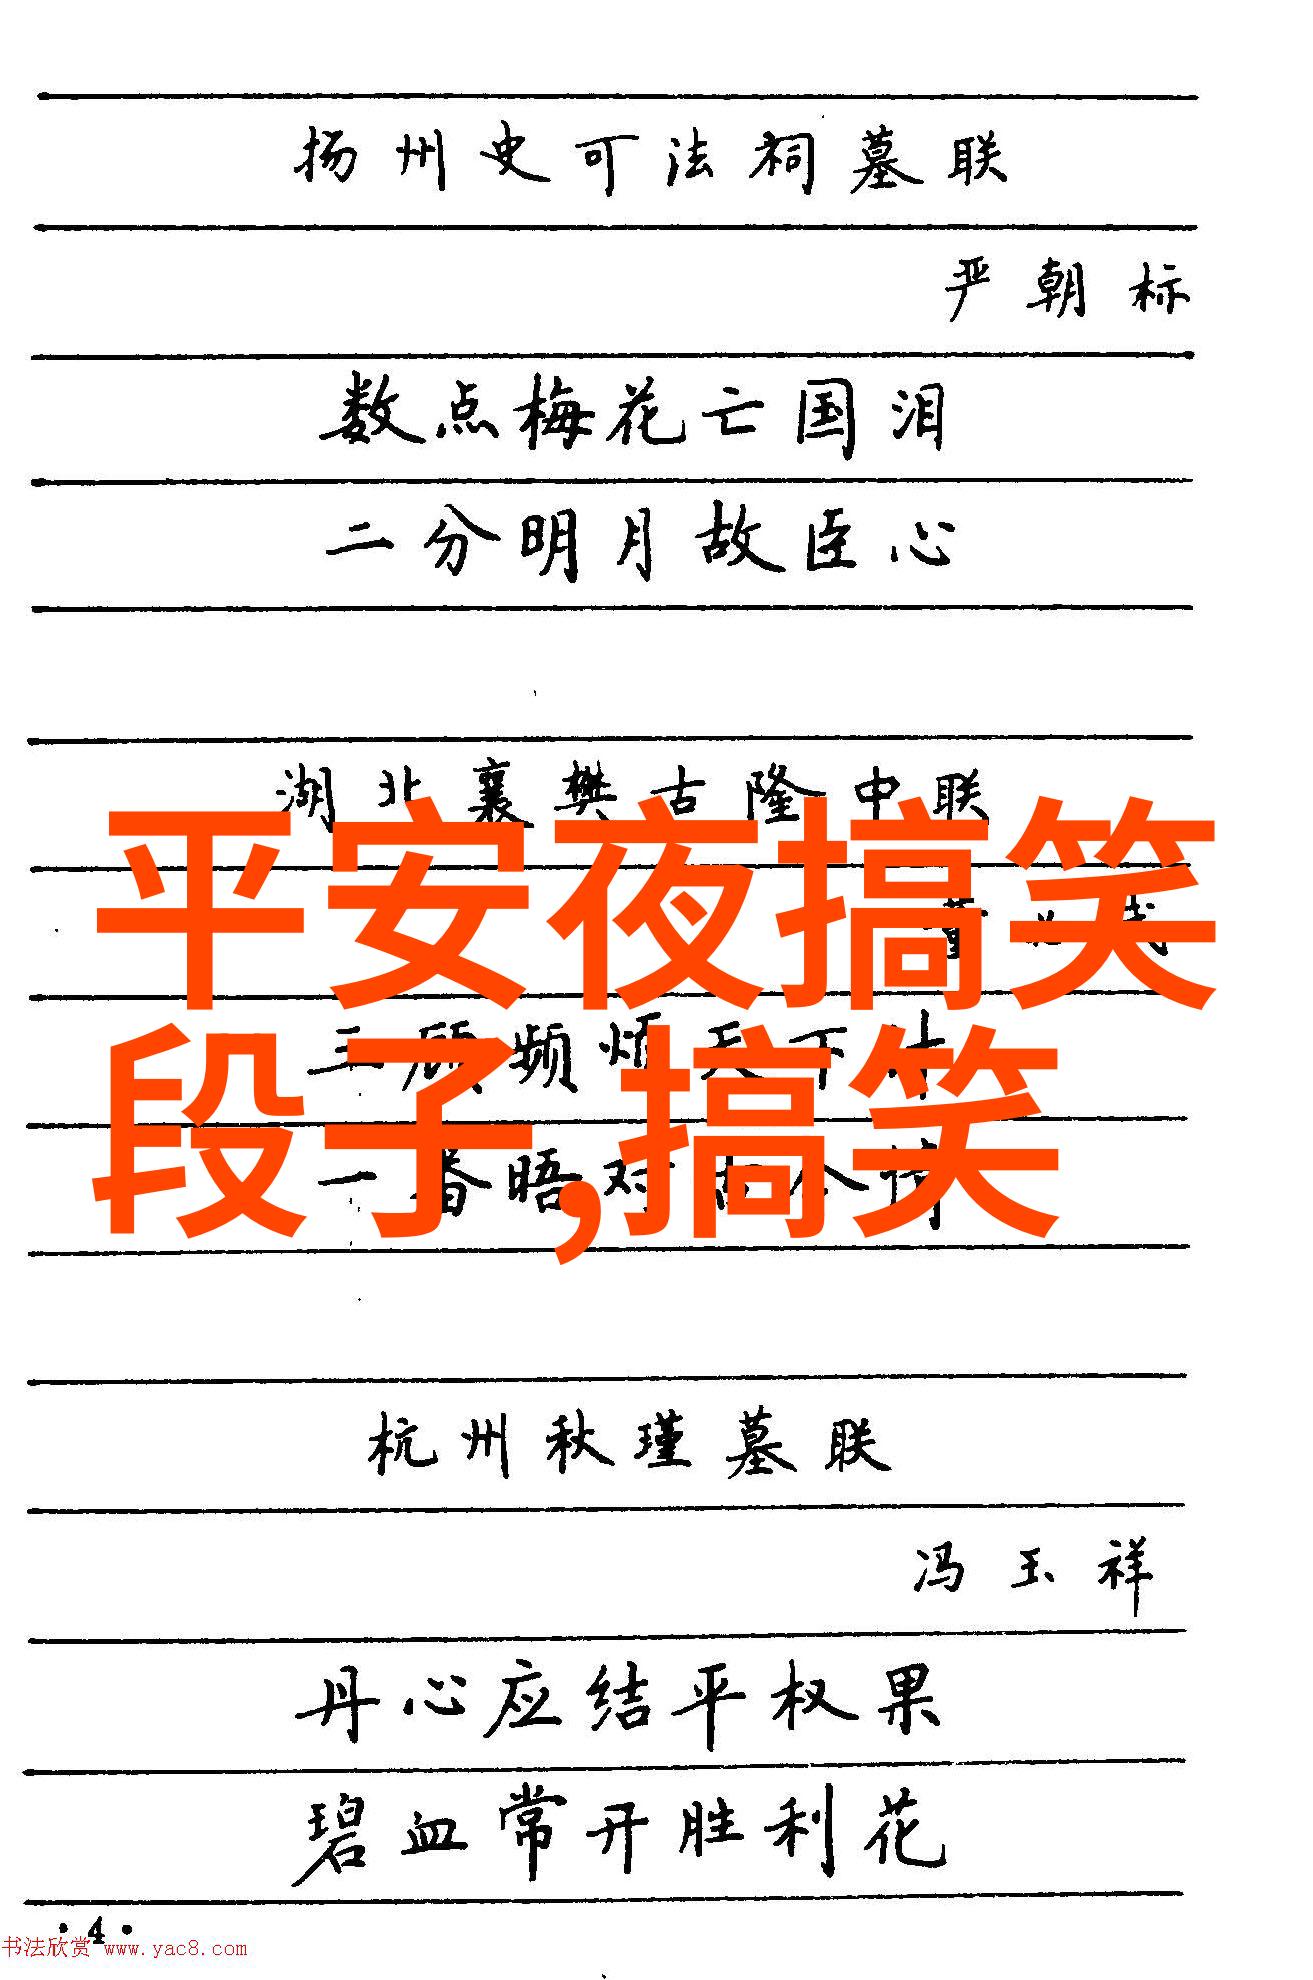 扬州史可法祠墓联
严朝标
数点梅花亡国泪
二分明月故臣心
湖北襄樊古隆中联
董
平安夜搞笑
三顾频烦天下计
段子,搞笑
一番晤对古今情
杭州秋瑾墓联
冯玉祥
丹心应结平权果
碧血常开胜利花
·4·
书法欣赏 www.yac8.com